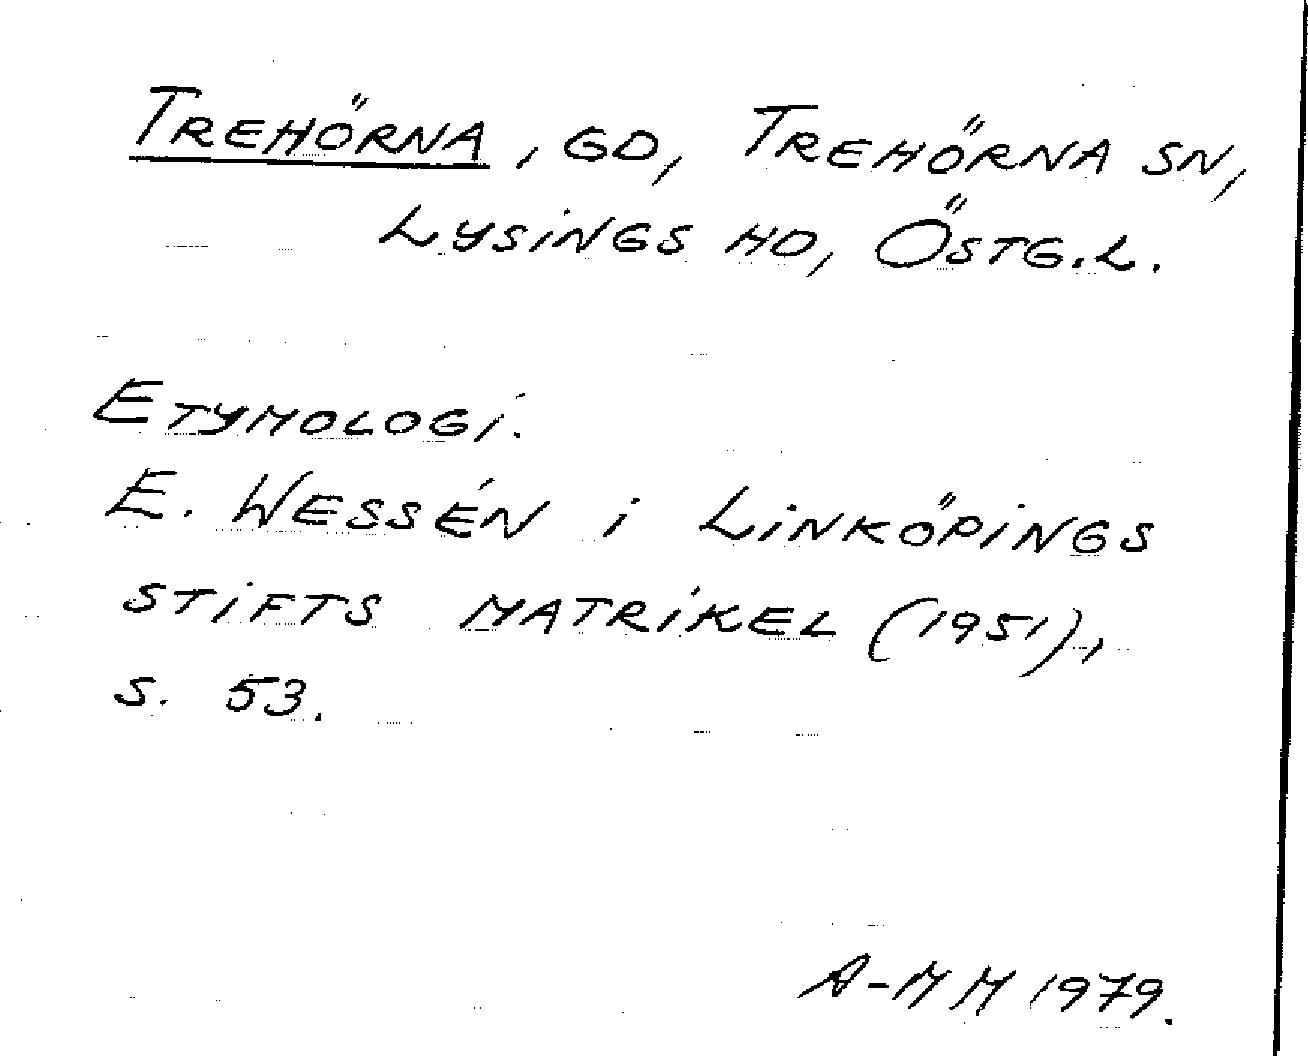 TREHÖRNA, GD, TREHÖRNA SN,
LYSINGS HD, ÖSTG.L.
ETYMOLOGI.
E. WESSÉN i LINKÖPINGS
STIFTS MATRIKEL (1951),
S. 53.
A-MM 1979.